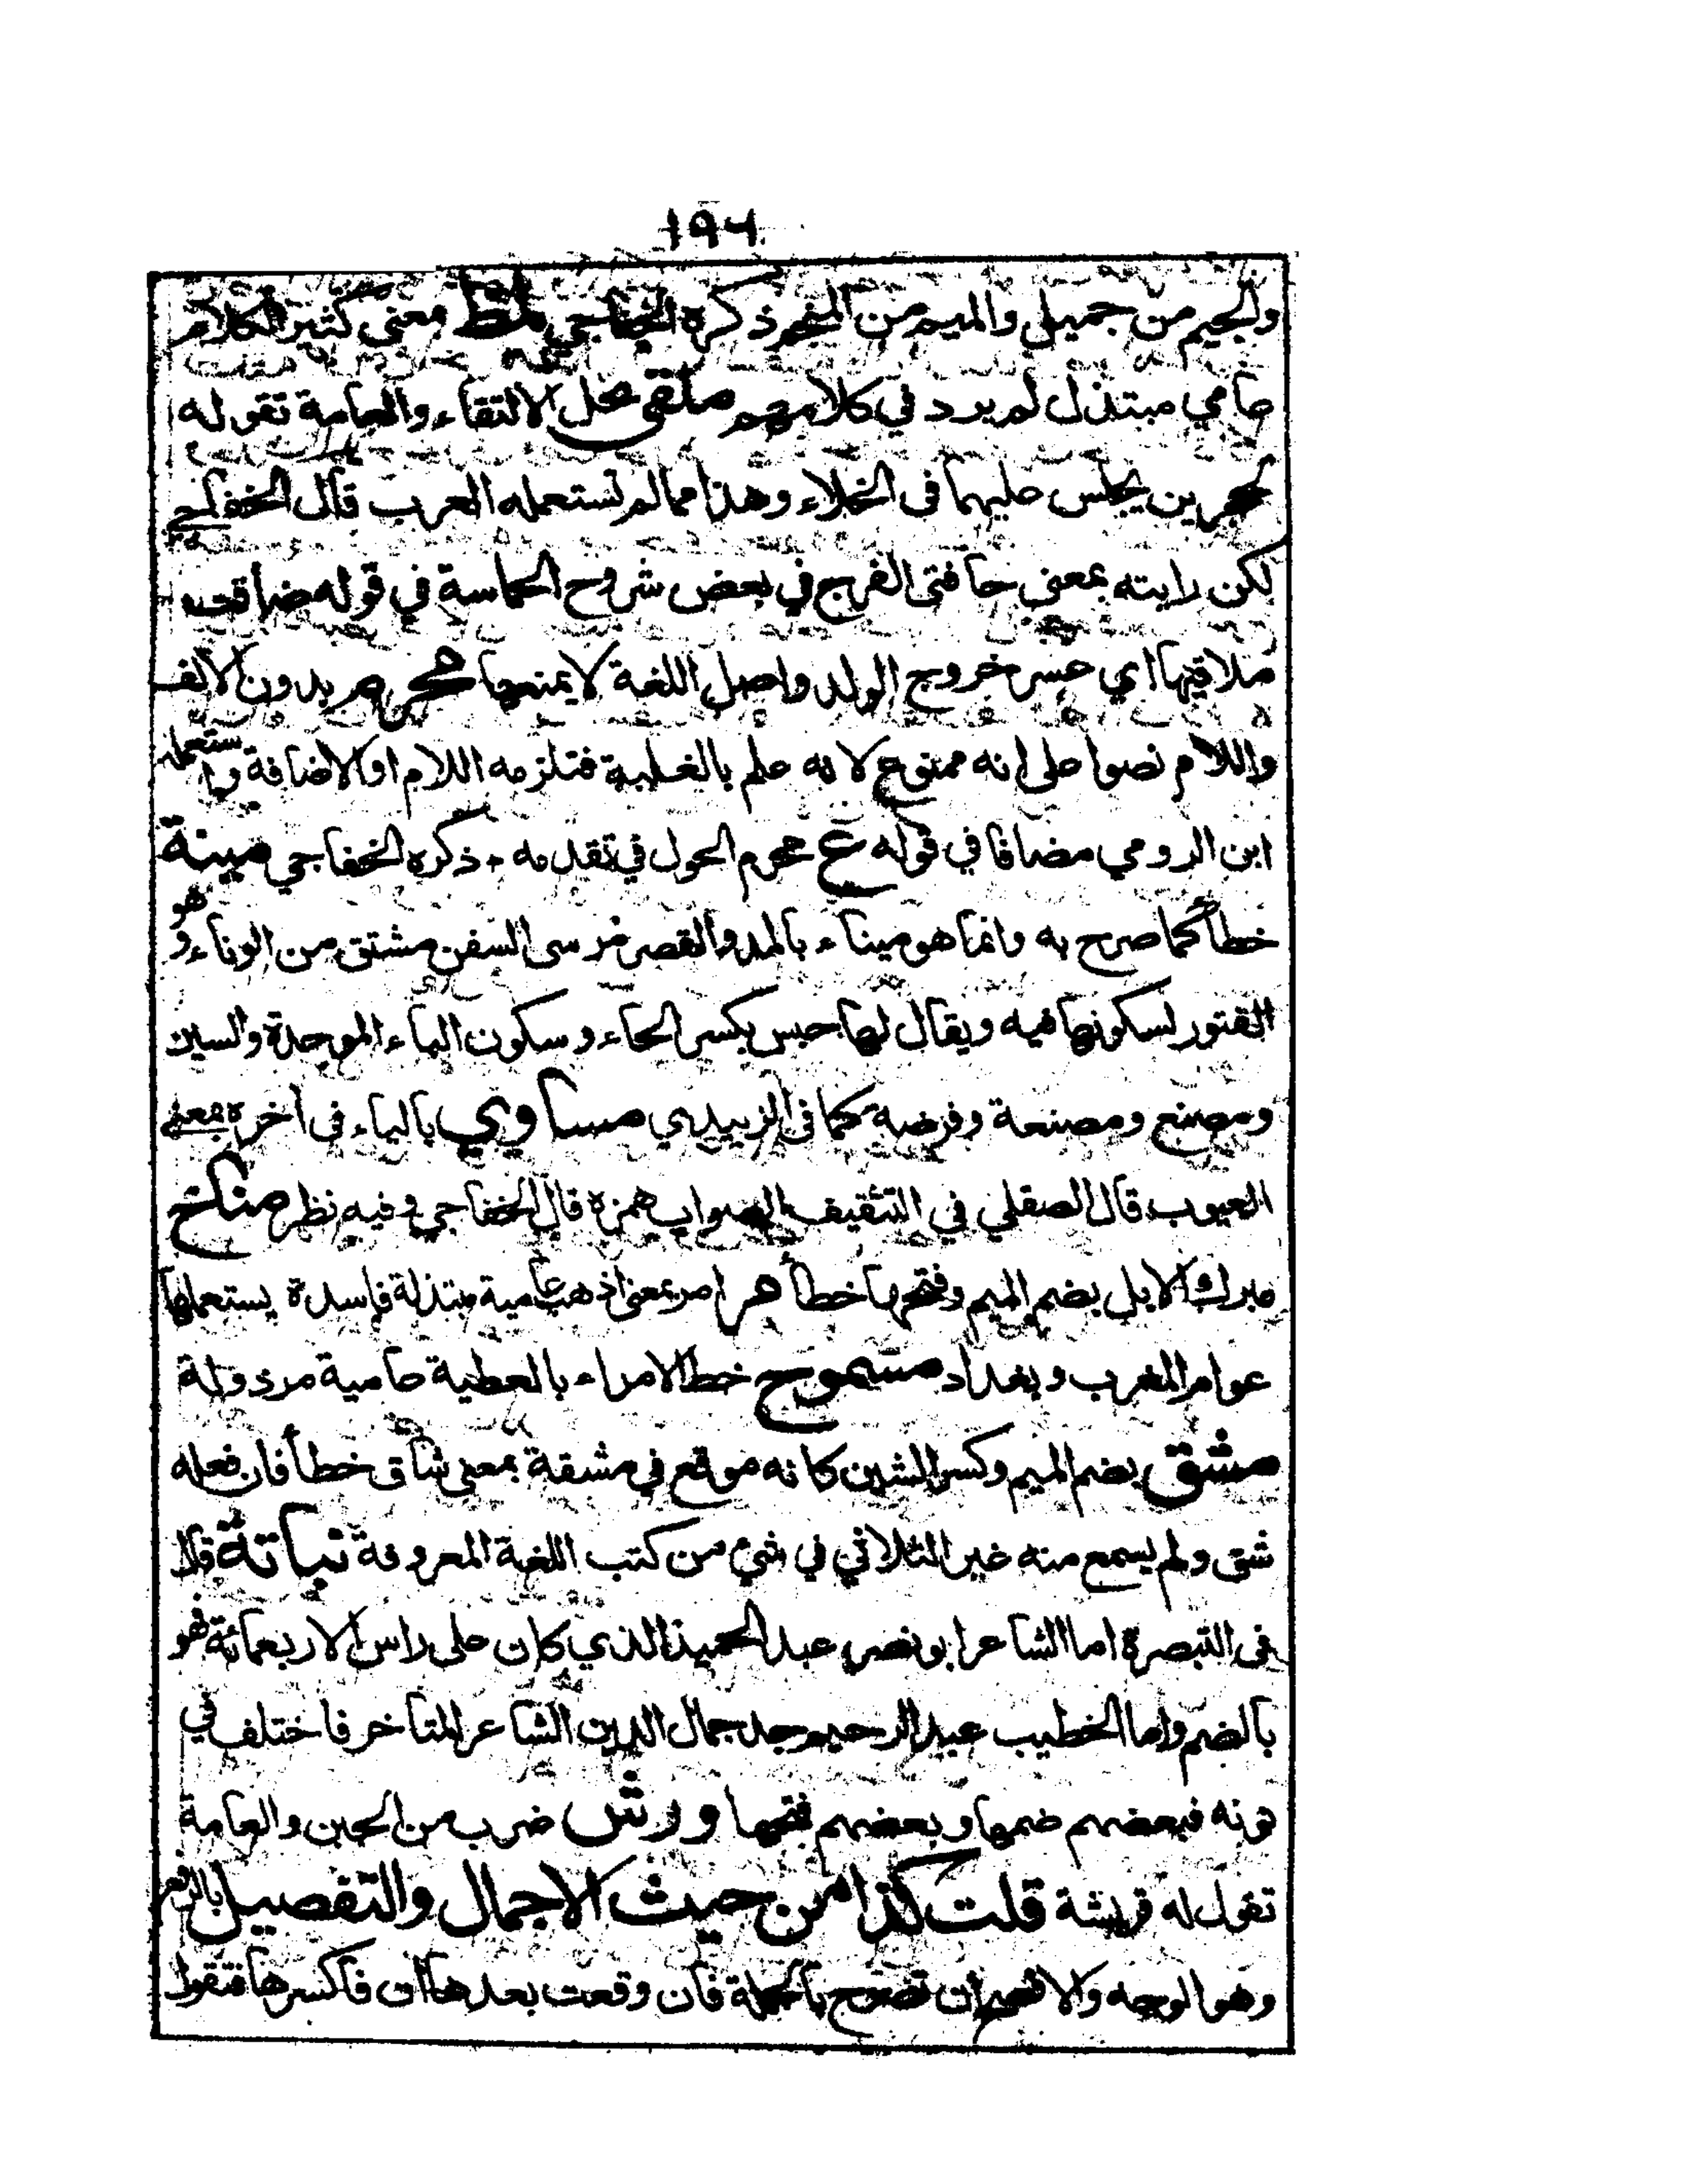 ١٩٦
والجيم من جميل والميم من المنعم ذكره الخفاجي ملط بمعنى كثير الكلام
عامي مبتذل لم يرد في كلامهم ملقى محل الالتقاء والعامة تقوله
لحجرين يجلس عليهما فى الخلاء وهذا مما لم تستعمله العرب قال الخفاجي
لكن رايته بمعنى حافتى الفرج في بعض شروح الحماسة في قوله ضاقت
ملاقيها اي عسر خروج الولد واصل اللغة لا يمنعها محرم بدون الالف
واللام نصوا على انه ممنوع لانه علم بالغلبة فتلزمه اللام او الاضافة واستعمله
ابن الرومي مضافا في قوله ع محرم الحول في تقدمه ، ذكره الخفاجي مينة
خطأ كما صرح به وانما هو ميناء بالمد والقصر مرسى السفن مشتق من الوناء وهو
الفتور لسكونها فيه ويقال لها حبس بكسر الحاء وسكون الباء الموحدة والسين
ومصنع ومصنعة وفرضة كما فى الزبيدي مساوي بالياء فى اخره بمعنى
العيوب قال الصقلي في التثقيف الصواب همزه قال الخفاجي وفيه نظر مناخ
مبرك الابل بضم الميم وفتحها خطأ هر امر بمعنى اذهب عامية مبتذلة فاسدة يستعملها
عوام المغرب وبغداد مسموح خط الامراء بالعطية عامية مرذولة
مشق بضم الميم وكسر الشين كانه موقع في مشقة بمعنى شاق خطأ فان فعله
شق ولم يسمع منه غير الثلاثي في شيء من كتب اللغة المعروفة نباتة قال
فى التبصرة اما الشاعر ابو نصر عبد الحميد الذي كان على راس الاربعمائة فهو
بالضم واما الخطيب عبد الرحيم وجد جمال الدين الشاعر المتاخر فاختلف في
نونه فبعضهم ضمها وبعضهم فتحها ورش ضرب من الجبن والعامة
تقول له قريشة قلت كذا من حيث الاجمال والتفصيل بالرفع
وهو الوجه والا فصح ان تصرح بالجملة فان وقعت بعدها ان فاكسرها فتقول